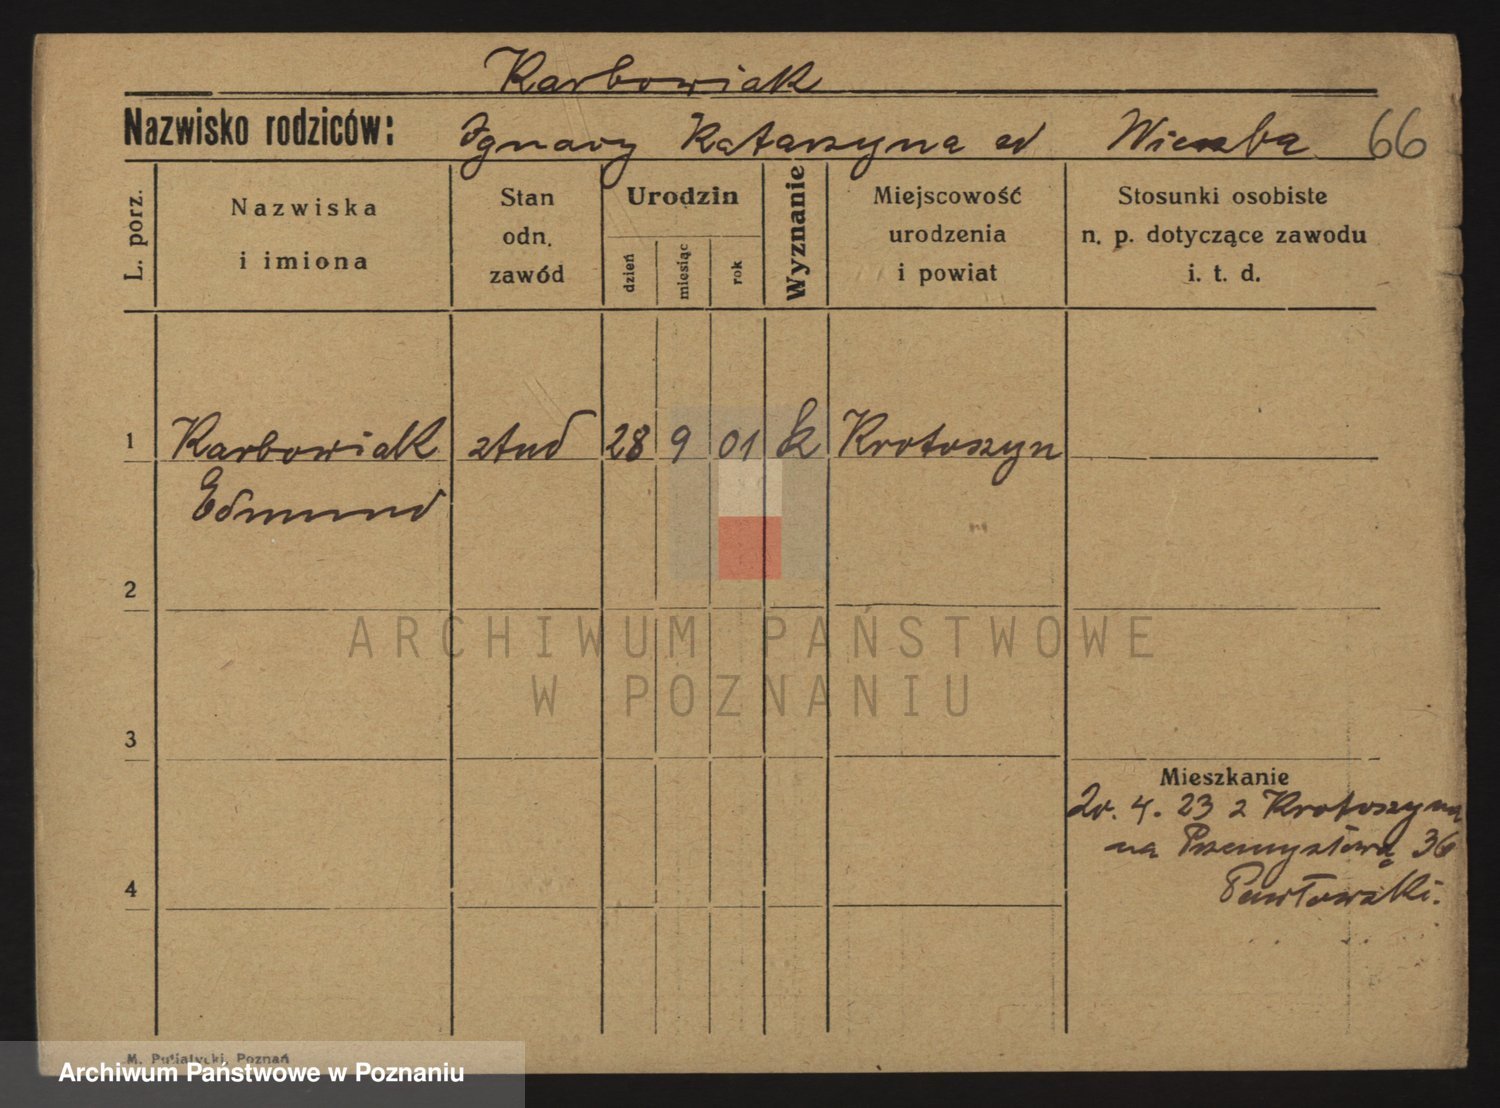 Karbowiak
Nazwisko rodziców: Ignacy Katarzyna Wierzba 66
L. porz.
Nazwiska
i imiona
Stan
odn.
zawód
Urodzin
dzień
miesiąc
rok
Wyznanie
Miejscowość
urodzenia
i powiat
Stosunki osobiste
n. p. dotyczące zawodu
i. t. d.
1 Karbowiak stud 28 9 01 k Krotoszyn
Edmund
2
ARCHIWUM PAŃSTWOWE
W POZNANIU
3
Mieszkanie
20. 4. 23 z Krotoszyna
na Przemysłową 36
Pawłowski.
4
M. Putiatycki, Poznań
Archiwum Państwowe w Poznaniu